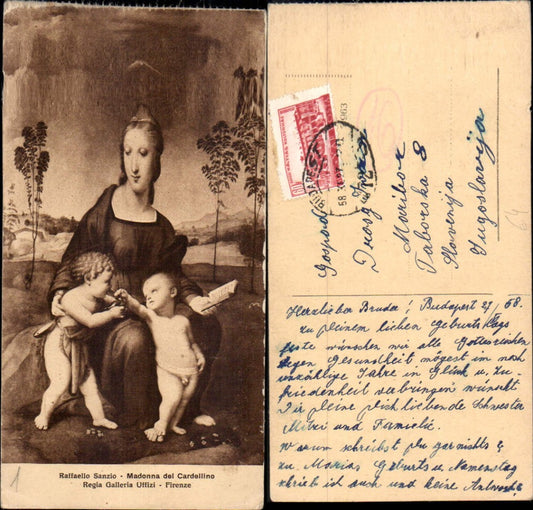 Raffaello Sanzio - Madonna del Cardellino
Regia Galleria Uffizi - Firenze
1
60
BUDAPEST
58
963
64
Gospod
Drosg
Maribor
Taborska 8
Slovenija
Jugoslavija
Herzlieber Bruder! Budapest 27/ 58.
zu Deinem lieben Geburtstags
feste wünschen wir alle Gottesreichen
Segen Gesundheit mögest im noch
unzählige Jahre in Glück u. Zu-
friedenheit verbringen wünscht
Dir Deine Dich liebende Schwester
Mitzi und Familie.
Warum schreibst Du gar nichts
zu Marias Geburts u. Namenstag
schrieb ich auch und keine Antwort